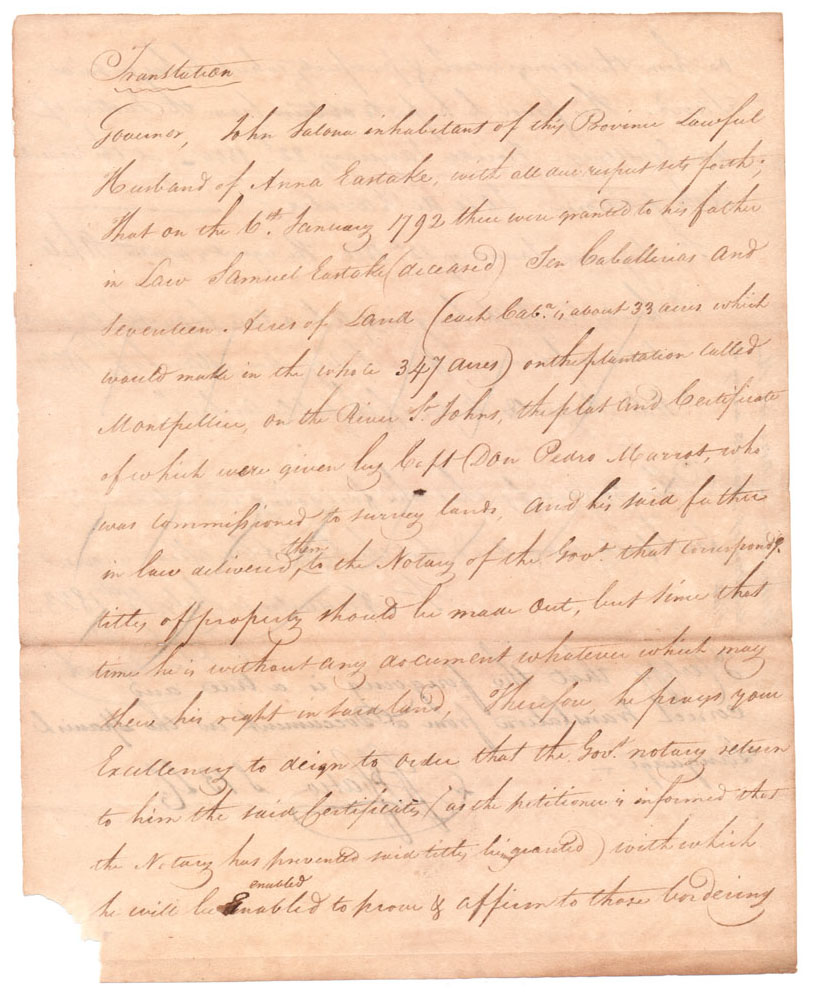 Translation
Governor, John Salona inhabitant of this Province Lawful
Husband of Anna Eastake, with all due respect sets forth;
That on the 6th. January 1792 there were granted to his father
in Law Samuel Eastake (deceased) Ten Caballerias and
seventeen. Acres of Land (each Caba. is about 33 acres which
would make in the whole 347 acres) on the plantation called
Montpellier, on the River St. Johns, the plat and Certificate
of which were given by Capt Don Pedro Marrot, who
was commissioned to survey lands, and his said father
in law delivered, them to the Notary of the Govt. that correspondg.
titles of property should be made out, but since that
time he is without any document whatever which may
shew his right in said land, Therefore, he prays your
Excellency to deign to order that the Govt. notary return
to him the said Certificates (as the petitioner is informed that
the Notary has prevented said titles being granted) with which
he will be enabled Enabled to prove & affirm to those bordering